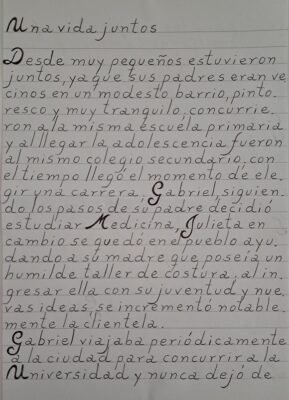 Una vida juntos
Desde muy pequeños estuvieron
juntos, ya que sus padres eran ve
cinos en un modesto barrio, pinto.
resco y muy tranquilo, concurrie.
ron a la misma escuela primaria
y al llegar la adolescencia fueron
al mismo colegio secundario, con
el tiempo llegó el momento de ele.
gir una carrera, Gabriel, siguien.
do los pasos de su padre decidió
estudiar Medicina, Julieta en
cambio se quedó en el pueblo ayu.
dando a su madre que poseía un
humilde taller de costura, al in.
gresar ella con su juventud y nue.
vas ideas, se incrementó notable.
mente la clientela.
Gabriel viajaba periódicamente
a la ciudad para concurrir a la
Universidad y nunca dejó de